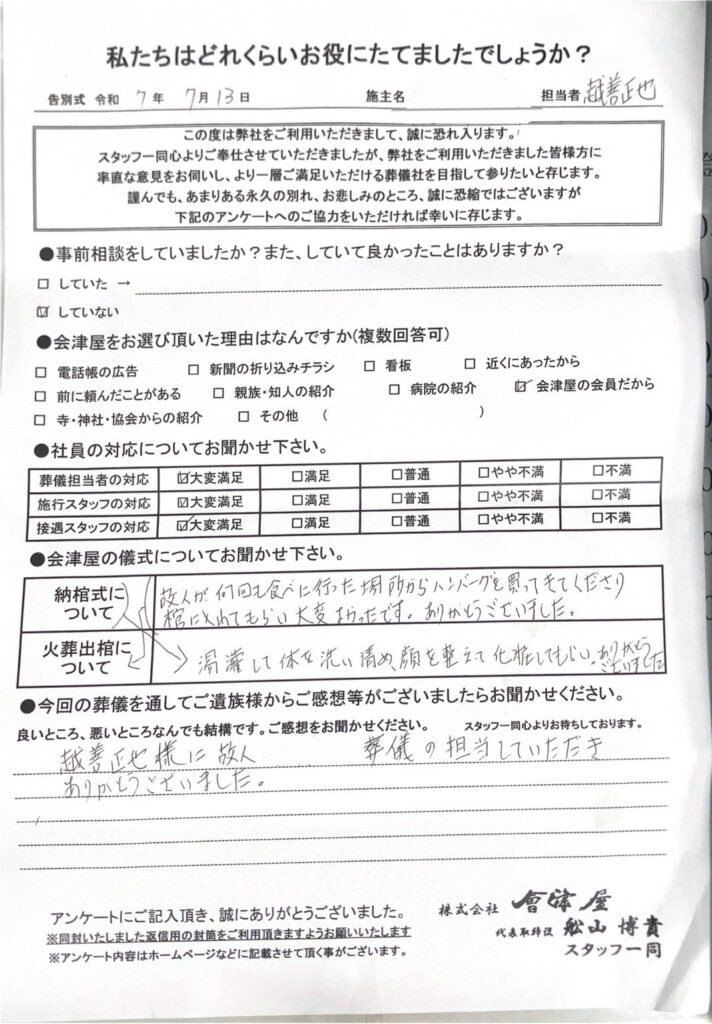 私たちはどれくらいお役にたてましたでしょうか？
告別式 令和 7 年 7 月 13 日 施主名 担当者 越善正也
この度は弊社をご利用いただきまして、誠に恐れ入ります。
スタッフ一同心よりご奉仕させていただきましたが、弊社をご利用いただきました皆様方に
率直な意見をお伺いし、より一層ご満足いただける葬儀社を目指して参りたいと存じます。
謹んでも、あまりある永久の別れ、お悲しみのところ、誠に恐縮ではございますが
下記のアンケートへのご協力をいただければ幸いに存じます。
●事前相談をしていましたか？また、していて良かったことはありますか？
□ していた →
☑ していない
●会津屋をお選び頂いた理由はなんですか(複数回答可)
□ 電話帳の広告 □ 新聞の折り込みチラシ □ 看板 □ 近くにあったから
□ 前に頼んだことがある □ 親族・知人の紹介 □ 病院の紹介 ☑ 会津屋の会員だから
□ 寺・神社・協会からの紹介 □ その他 ( )
●社員の対応についてお聞かせ下さい。
葬儀担当者の対応 ☑大変満足 □満足 □普通 □やや不満 □不満
施行スタッフの対応 ☑大変満足 □満足 □普通 □やや不満 □不満
接遇スタッフの対応 ☑大変満足 □満足 □普通 □やや不満 □不満
●会津屋の儀式についてお聞かせ下さい。
納棺式に
ついて
故人が何回も食べに行った場所からハンバーグを買ってきてくださり
棺に入れてもらい大変よかったです。ありがとうございました。
火葬出棺に
ついて
湯灌して体を洗い清め、顔を整えて化粧してもらい、ありがとう
ございました
●今回の葬儀を通してご遺族様からご感想等がございましたらお聞かせください。
良いところ、悪いところなんでも結構です。ご感想をお聞かせください。 スタッフ一同心よりお待ちしております。
越善正也様に故人 葬儀の担当していただき
ありがとうございました。
アンケートにご記入頂き、誠にありがとうございました。
※同封いたしました返信用の封筒をご利用頂きますようお願いいたします
※アンケート内容はホームページなどに記載させて頂く事がございます。
株式会社 會津屋
代表取締役 舩山 博貴
スタッフ一同